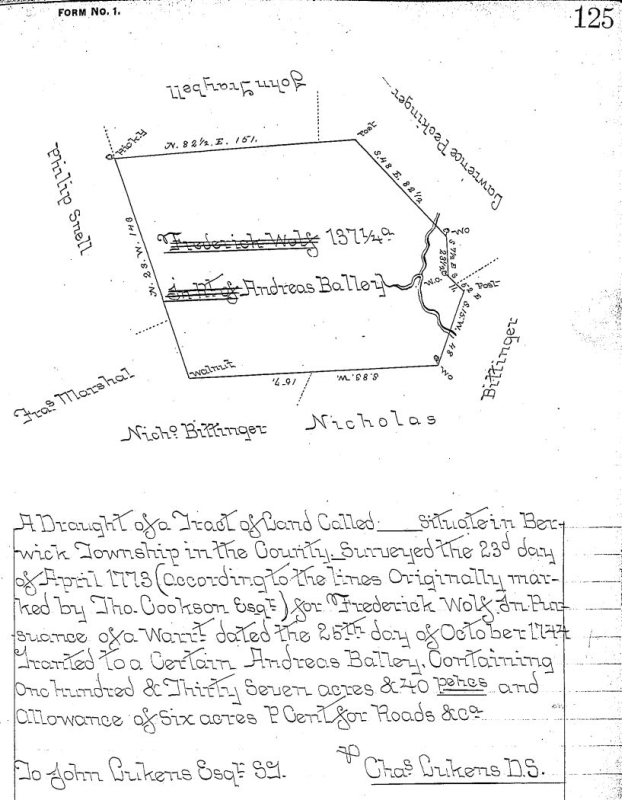 FORM No. 1.
125
John Graybell
Philip Snell
Hicky
N. 82½. E. 151.
Post
Lawrence Peckinger
S. 48 E. 82½
N. 23. W. 148
Frederick Wolf 137¼ a
W.O.
S 7½ E
23½
In Rt. of Andreas Balley
W.O.
S 52 E
Post
S. 15. W. 48
Walnut
S. 85. W. 157.
WO
Bittinger
Fras Marshal
Nicho. Bittinger
Nicholas
A Draught of a Tract of Land Called: ___ Situate in Ber-
wick Township in the County. Surveyed the 23d day
of April 1773 (according to the lines Originally mar-
ked by Tho. Cookson Esqr.) for Frederick Wolf In Pur-
suance of a Warrt. dated the 25th day of October 1744
Granted to a Certain Andreas Balley. Containing
one hundred & Thirty Seven acres & 40 pches and
allowance of Six acres P Cent for Roads &ca
To John Lukens Esqr. SG.
Chas. Lukens D.S.